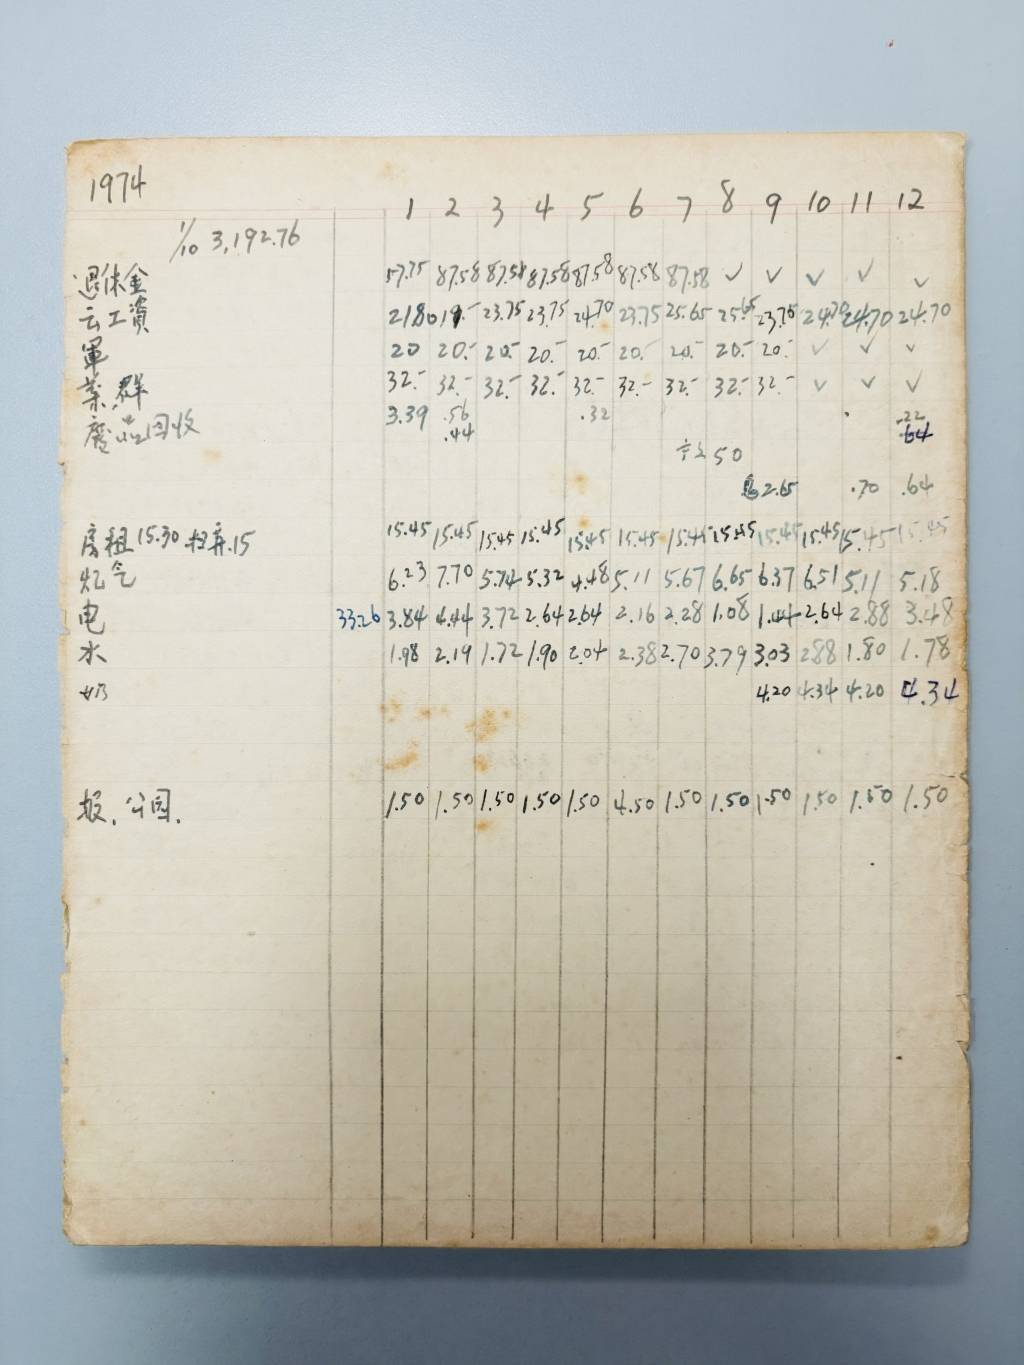 1974
1 2 3 4 5 6 7 8 9 10 11 12
1/10 3,192.76
退休金 57.75 87.58 87.58 87.58 87.58 87.58 87.58 ✓ ✓ ✓ ✓ ✓
云工資 21.80 19.- 23.75 23.75 24.70 23.75 25.65 25.65 23.75 24.70 24.70 24.70
軍 20 20.- 20.- 20.- 20.- 20.- 20.- 20.- 20.- ✓ ✓ ✓
業,群 32.- 32.- 32.- 32.- 32.- 32.- 32.- 32.- 32.- ✓ ✓ ✓
廢品回收 3.39 .56 .32 .22
.44 .64
50
2.65 .70 .64
房租 15.30 .15 15.45 15.45 15.45 15.45 15.45 15.45 15.45 15.45 15.45 15.45 15.45 15.45
灶气 6.23 7.70 5.74 5.32 4.48 5.11 5.67 6.65 6.37 6.51 5.11 5.18
电 33.26 3.84 4.44 3.72 2.64 2.64 2.16 2.28 1.08 1.44 2.64 2.88 3.48
水 1.98 2.19 1.72 1.90 2.04 2.38 2.70 3.79 3.03 2.88 1.80 1.78
奶 4.20 4.34 4.20 4.34
报.公园. 1.50 1.50 1.50 1.50 1.50 4.50 1.50 1.50 1.50 1.50 1.50 1.50